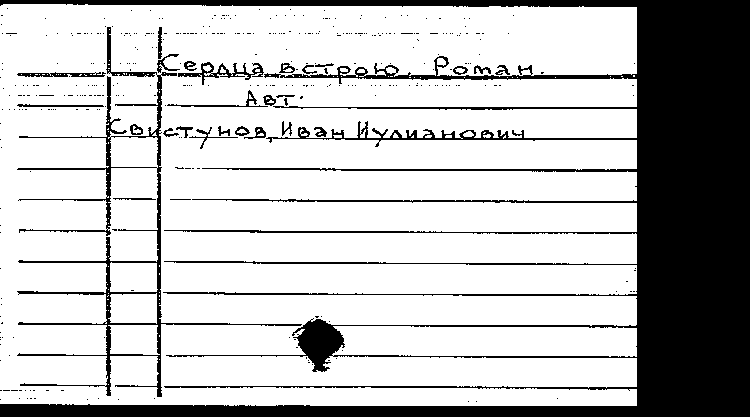 Сердца в строю. Роман.
Авт.
Свистунов, Иван Иулианович